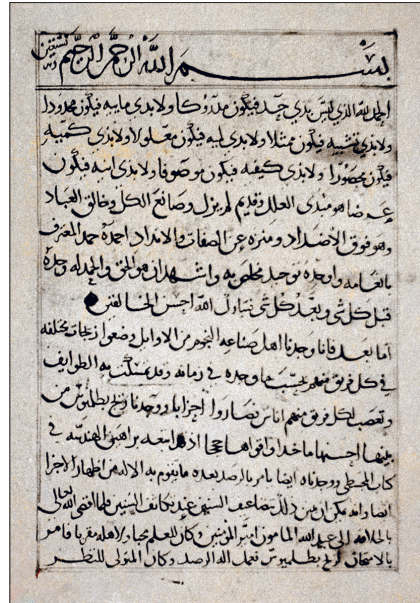 بسم الله الرحمن الرحيم
الحمد لله الذي ليس بذي حد فيكون مدركا ولا بذي مايه فيكون محدودا
ولا بذي تشبيه فيكون مثلا ولا بذي لميه فيكون معلولا ولا بذي كميه
فيكون محصورا ولا بذي كيفيه فيكون موصوفا ولا بذي اينيه فيكون
هو مبدي العلل وقديم لم يزل وصانع الكل وخالق العباد
وهو فوق الاضداد ومنزه عن الصفات والانداد احمده حمد المعترف
بانعامه واوحده توحيد مخلص به واشهد ان هو الحق والحمد لله وحده
قبل كل شي وبعد كل شي تبارك الله احسن الخالقين
اما بعد فانا وجدنا اهل صناعه النجوم من الاوايل وضعوا زيجات مختلفه
في كل فريق منهم بحسب ما وجده في زمانه وقد تمسكت به الطوايف
وتعصب لكل فريق منهم اناس فصاروا احزابا ووجدنا زيج بطلميوس من
بينها احسنها ماخذا واقواها حججا اذ اتبعه براهين الهندسه في
كتاب المجسطي ووجدناه ايضا يامر بالرصد بعده
السنين عند تكاثف السنين فلما افضى الله تعالى
بالخلافه الى عبد الله المامون امير المومنين وكان للعلم محبا ولاهله مقربا فامر
بالامتحان لزيج بطلميوس فعمل الرصد وكان المتولي للنظر